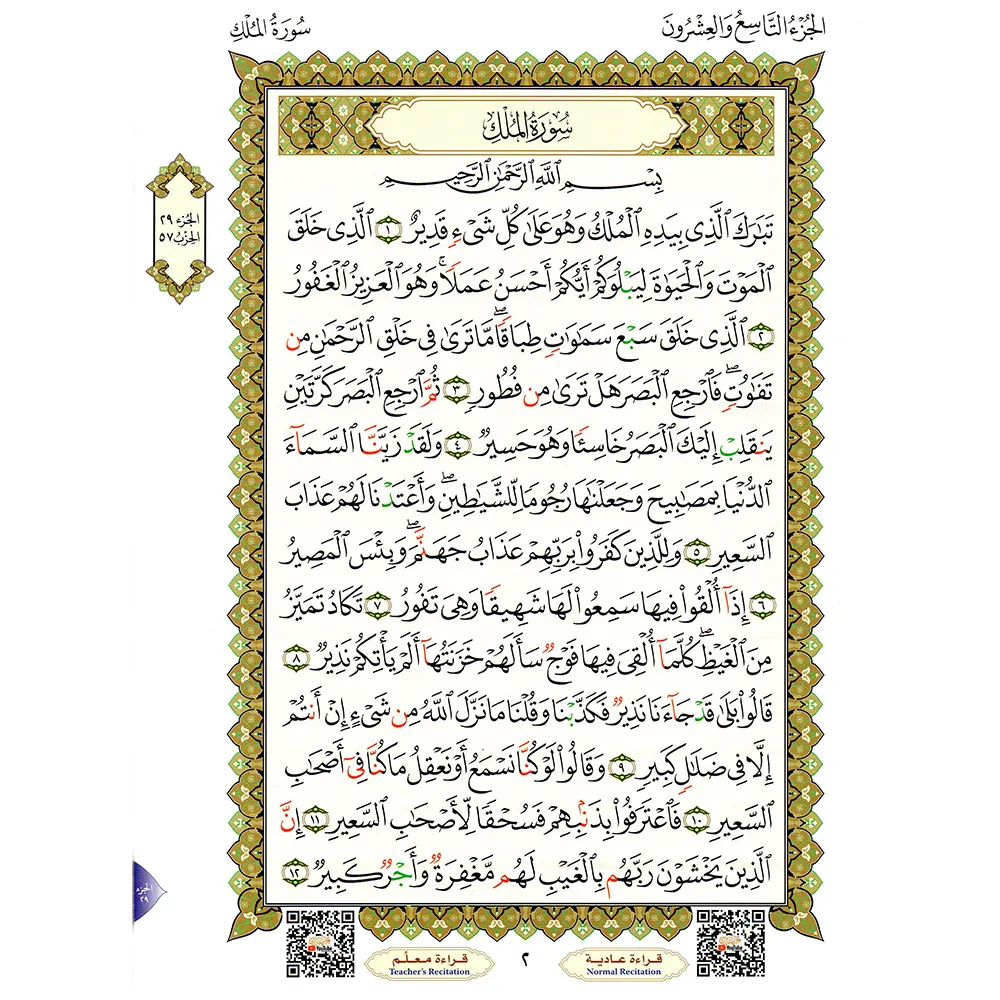 الجُزْءُ التَّاسِعُ وَالعِشْرُونَ
سُورَةُ المُلْكِ
سُورَةُ المُلْكِ
بِسْمِ ٱللَّهِ ٱلرَّحْمَٰنِ ٱلرَّحِيمِ
تَبَٰرَكَ ٱلَّذِى بِيَدِهِ ٱلْمُلْكُ وَهُوَ عَلَىٰ كُلِّ شَىْءٍ قَدِيرٌ ١ ٱلَّذِى خَلَقَ
ٱلْمَوْتَ وَٱلْحَيَوٰةَ لِيَبْلُوَكُمْ أَيُّكُمْ أَحْسَنُ عَمَلًا ۚ وَهُوَ ٱلْعَزِيزُ ٱلْغَفُورُ
٢ ٱلَّذِى خَلَقَ سَبْعَ سَمَٰوَٰتٍ طِبَاقًا ۖ مَّا تَرَىٰ فِى خَلْقِ ٱلرَّحْمَٰنِ مِن
تَفَٰوُتٍ ۖ فَٱرْجِعِ ٱلْبَصَرَ هَلْ تَرَىٰ مِن فُطُورٍ ٣ ثُمَّ ٱرْجِعِ ٱلْبَصَرَ كَرَّتَيْنِ
يَنقَلِبْ إِلَيْكَ ٱلْبَصَرُ خَاسِئًا وَهُوَ حَسِيرٌ ٤ وَلَقَدْ زَيَّنَّا ٱلسَّمَآءَ
ٱلدُّنْيَا بِمَصَٰبِيحَ وَجَعَلْنَٰهَا رُجُومًا لِّلشَّيَٰطِينِ ۖ وَأَعْتَدْنَا لَهُمْ عَذَابَ
ٱلسَّعِيرِ ٥ وَلِلَّذِينَ كَفَرُوا۟ بِرَبِّهِمْ عَذَابُ جَهَنَّمَ ۖ وَبِئْسَ ٱلْمَصِيرُ
٦ إِذَآ أُلْقُوا۟ فِيهَا سَمِعُوا۟ لَهَا شَهِيقًا وَهِىَ تَفُورُ ٧ تَكَادُ تَمَيَّزُ
مِنَ ٱلْغَيْظِ ۖ كُلَّمَآ أُلْقِىَ فِيهَا فَوْجٌ سَأَلَهُمْ خَزَنَتُهَآ أَلَمْ يَأْتِكُمْ نَذِيرٌ ٨
قَالُوا۟ بَلَىٰ قَدْ جَآءَنَا نَذِيرٌ فَكَذَّبْنَا وَقُلْنَا مَا نَزَّلَ ٱللَّهُ مِن شَىْءٍ إِنْ أَنتُمْ
إِلَّا فِى ضَلَٰلٍ كَبِيرٍ ٩ وَقَالُوا۟ لَوْ كُنَّا نَسْمَعُ أَوْ نَعْقِلُ مَا كُنَّا فِىٓ أَصْحَٰبِ
ٱلسَّعِيرِ ١٠ فَٱعْتَرَفُوا۟ بِذَنۢبِهِمْ فَسُحْقًا لِّأَصْحَٰبِ ٱلسَّعِيرِ ١١ إِنَّ
ٱلَّذِينَ يَخْشَوْنَ رَبَّهُم بِٱلْغَيْبِ لَهُم مَّغْفِرَةٌ وَأَجْرٌ كَبِيرٌ ١٢
الجُزء ٢٩
الحِزْب ٥٧
الجزء
٢٩
قراءة عادية
Normal Recitation
٢
قراءة معلّم
Teacher's Recitation
YouTube
YouTube